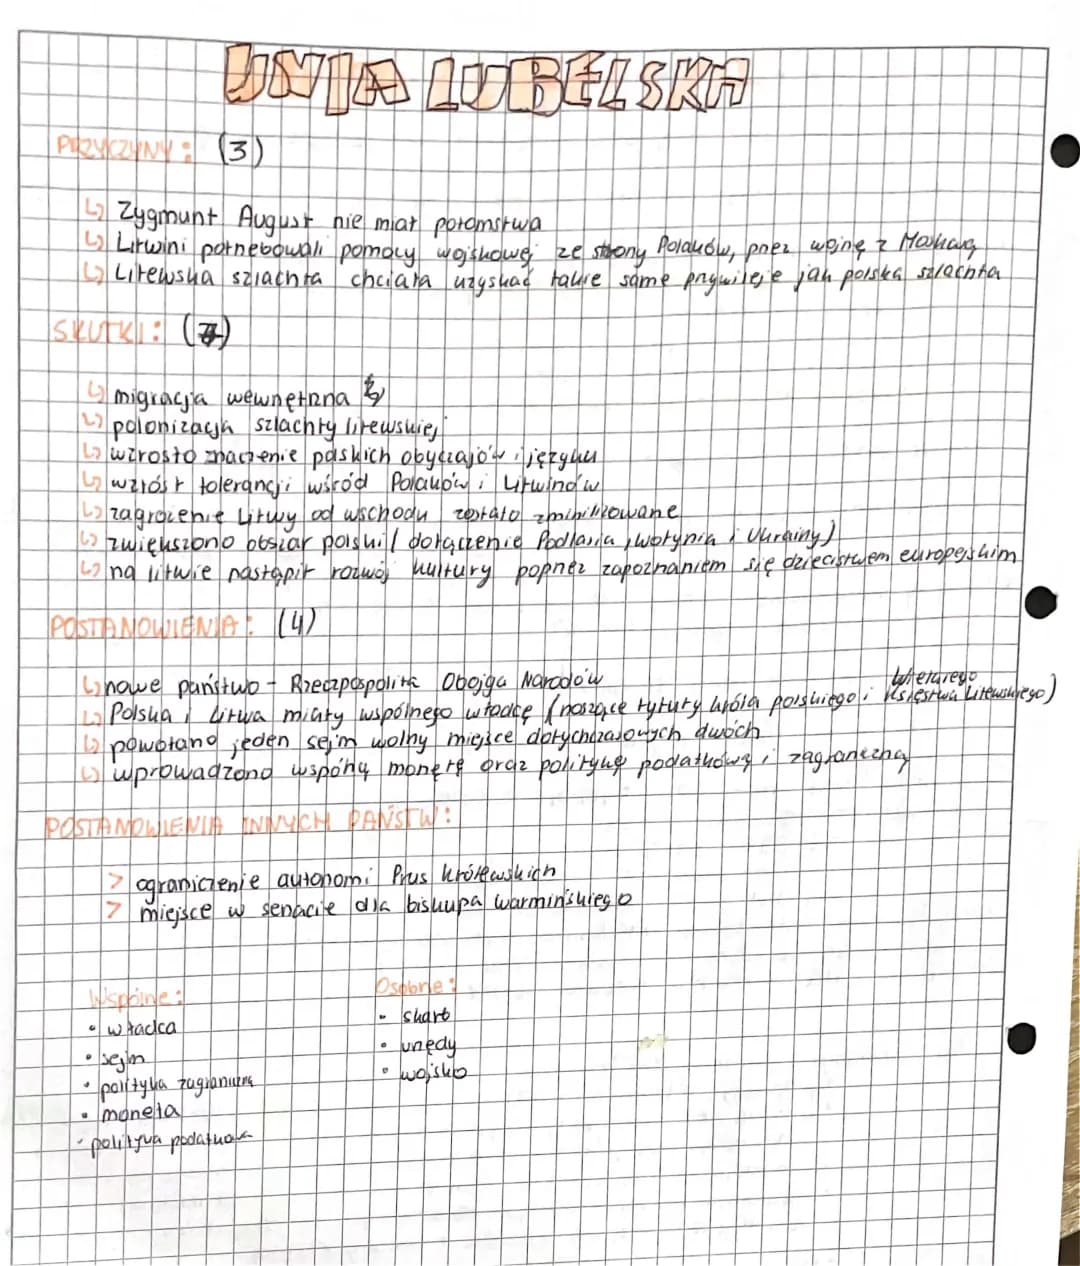 UNIA LUBELSKA
PRZYCZYNY: (3)
↳ Zygmunt August nie miał potomstwa
↳ Litwini potrzebowali pomocy wojskowej ze strony Polaków, przez wojnę z Moskwą
↳ Litewska szlachta chciała uzyskać takie same przywileje jak polska szlachta
SKUTKI: (7)
↳ migracja wewnętrzna
↳ polonizacja szlachty litewskiej
↳ wzrosło znaczenie polskich obyczajów i języku
↳ wzróst tolerancji wśród Polaków i Litwinów
↳ zagrożenie Litwy od wschodu zostało zminilizowane
↳ zwiększono obszar polski (dołączenie Podlasia, Wołynia i Ukrainy)
↳ na litwie nastąpił rozwój kultury poprzez zapoznaniem się dziecistwem europejskim
POSTANOWIENIA: (4)
↳ nowe państwo - Rzeczpospolita Obojga Narodów
↳ Polska i Litwa miały wspólnego władcę (noszące tytuły króla polskiego i Wielkiego Księstwa Litewskiego)
↳ powołano jeden sejm wolny miejsce dotychczasowych dwóch
↳ wprowadzono wspóną monetę oraz politykę podatkową i zagraniczną
POSTANOWIENIA INNYCH PAŃSTW:
> ograniczenie autonomi Prus Królewskich
> miejsce w senacie dla biskupa warmińskiego
Wspólne:
• władca
• sejm
• polityka zagraniczna
• moneta
• polityka podatkowa
Osobne:
• skarb
• urzędy
• wojsko